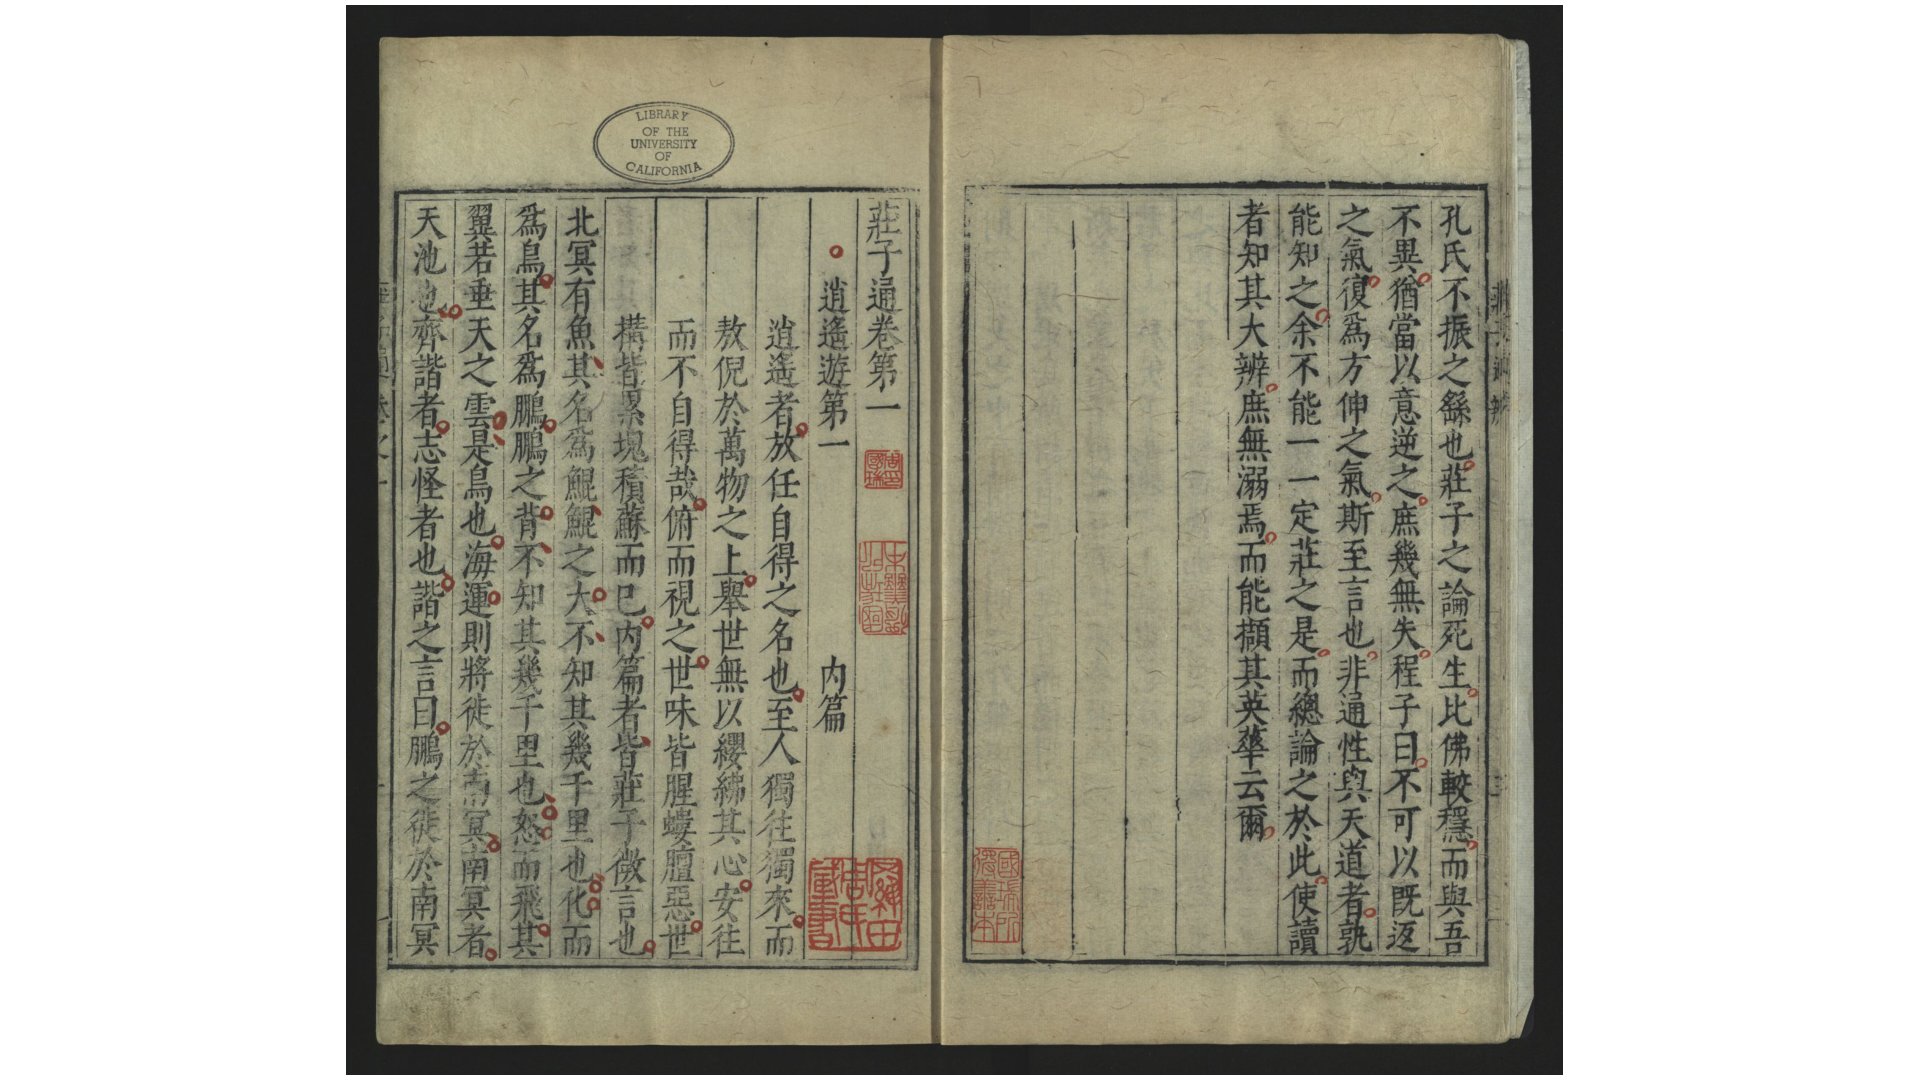 孔氏不振之繇也莊子之論死生比佛較穩而與吾
不異猶當以意逆之庶幾無失程子曰不可以既返
之氣復爲方伸之氣斯至言也非通性與天道者孰
能知之余不能一一定莊之是而總論之於此使讀
者知其大辨庶無溺焉而能擷其英華云爾
LIBRARY
OF THE
UNIVERSITY
OF
CALIFORNIA
莊子通卷第一
逍遙遊第一 內篇
逍遙者放任自得之名也至人獨往獨來而
敖倪於萬物之上舉世無以纓紼其心安往
而不自得哉俯而視之世味皆腥螻膻惡世
構皆累塊積蘇而已內篇者皆莊子微言也
北冥有魚其名爲鯤鯤之大不知其幾千里也化而
爲鳥其名爲鵬鵬之背不知其幾千里也怒而飛其
翼若垂天之雲是鳥也海運則將徙於南冥南冥者
天池也齊諧者志怪者也諧之言曰鵬之徙於南冥